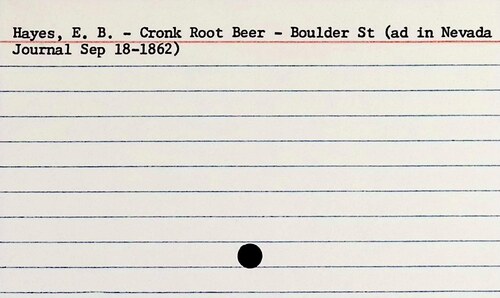 Hayes, E. B. - Cronk Root Beer - Boulder St (ad in Nevada
Journal Sep 18-1862)